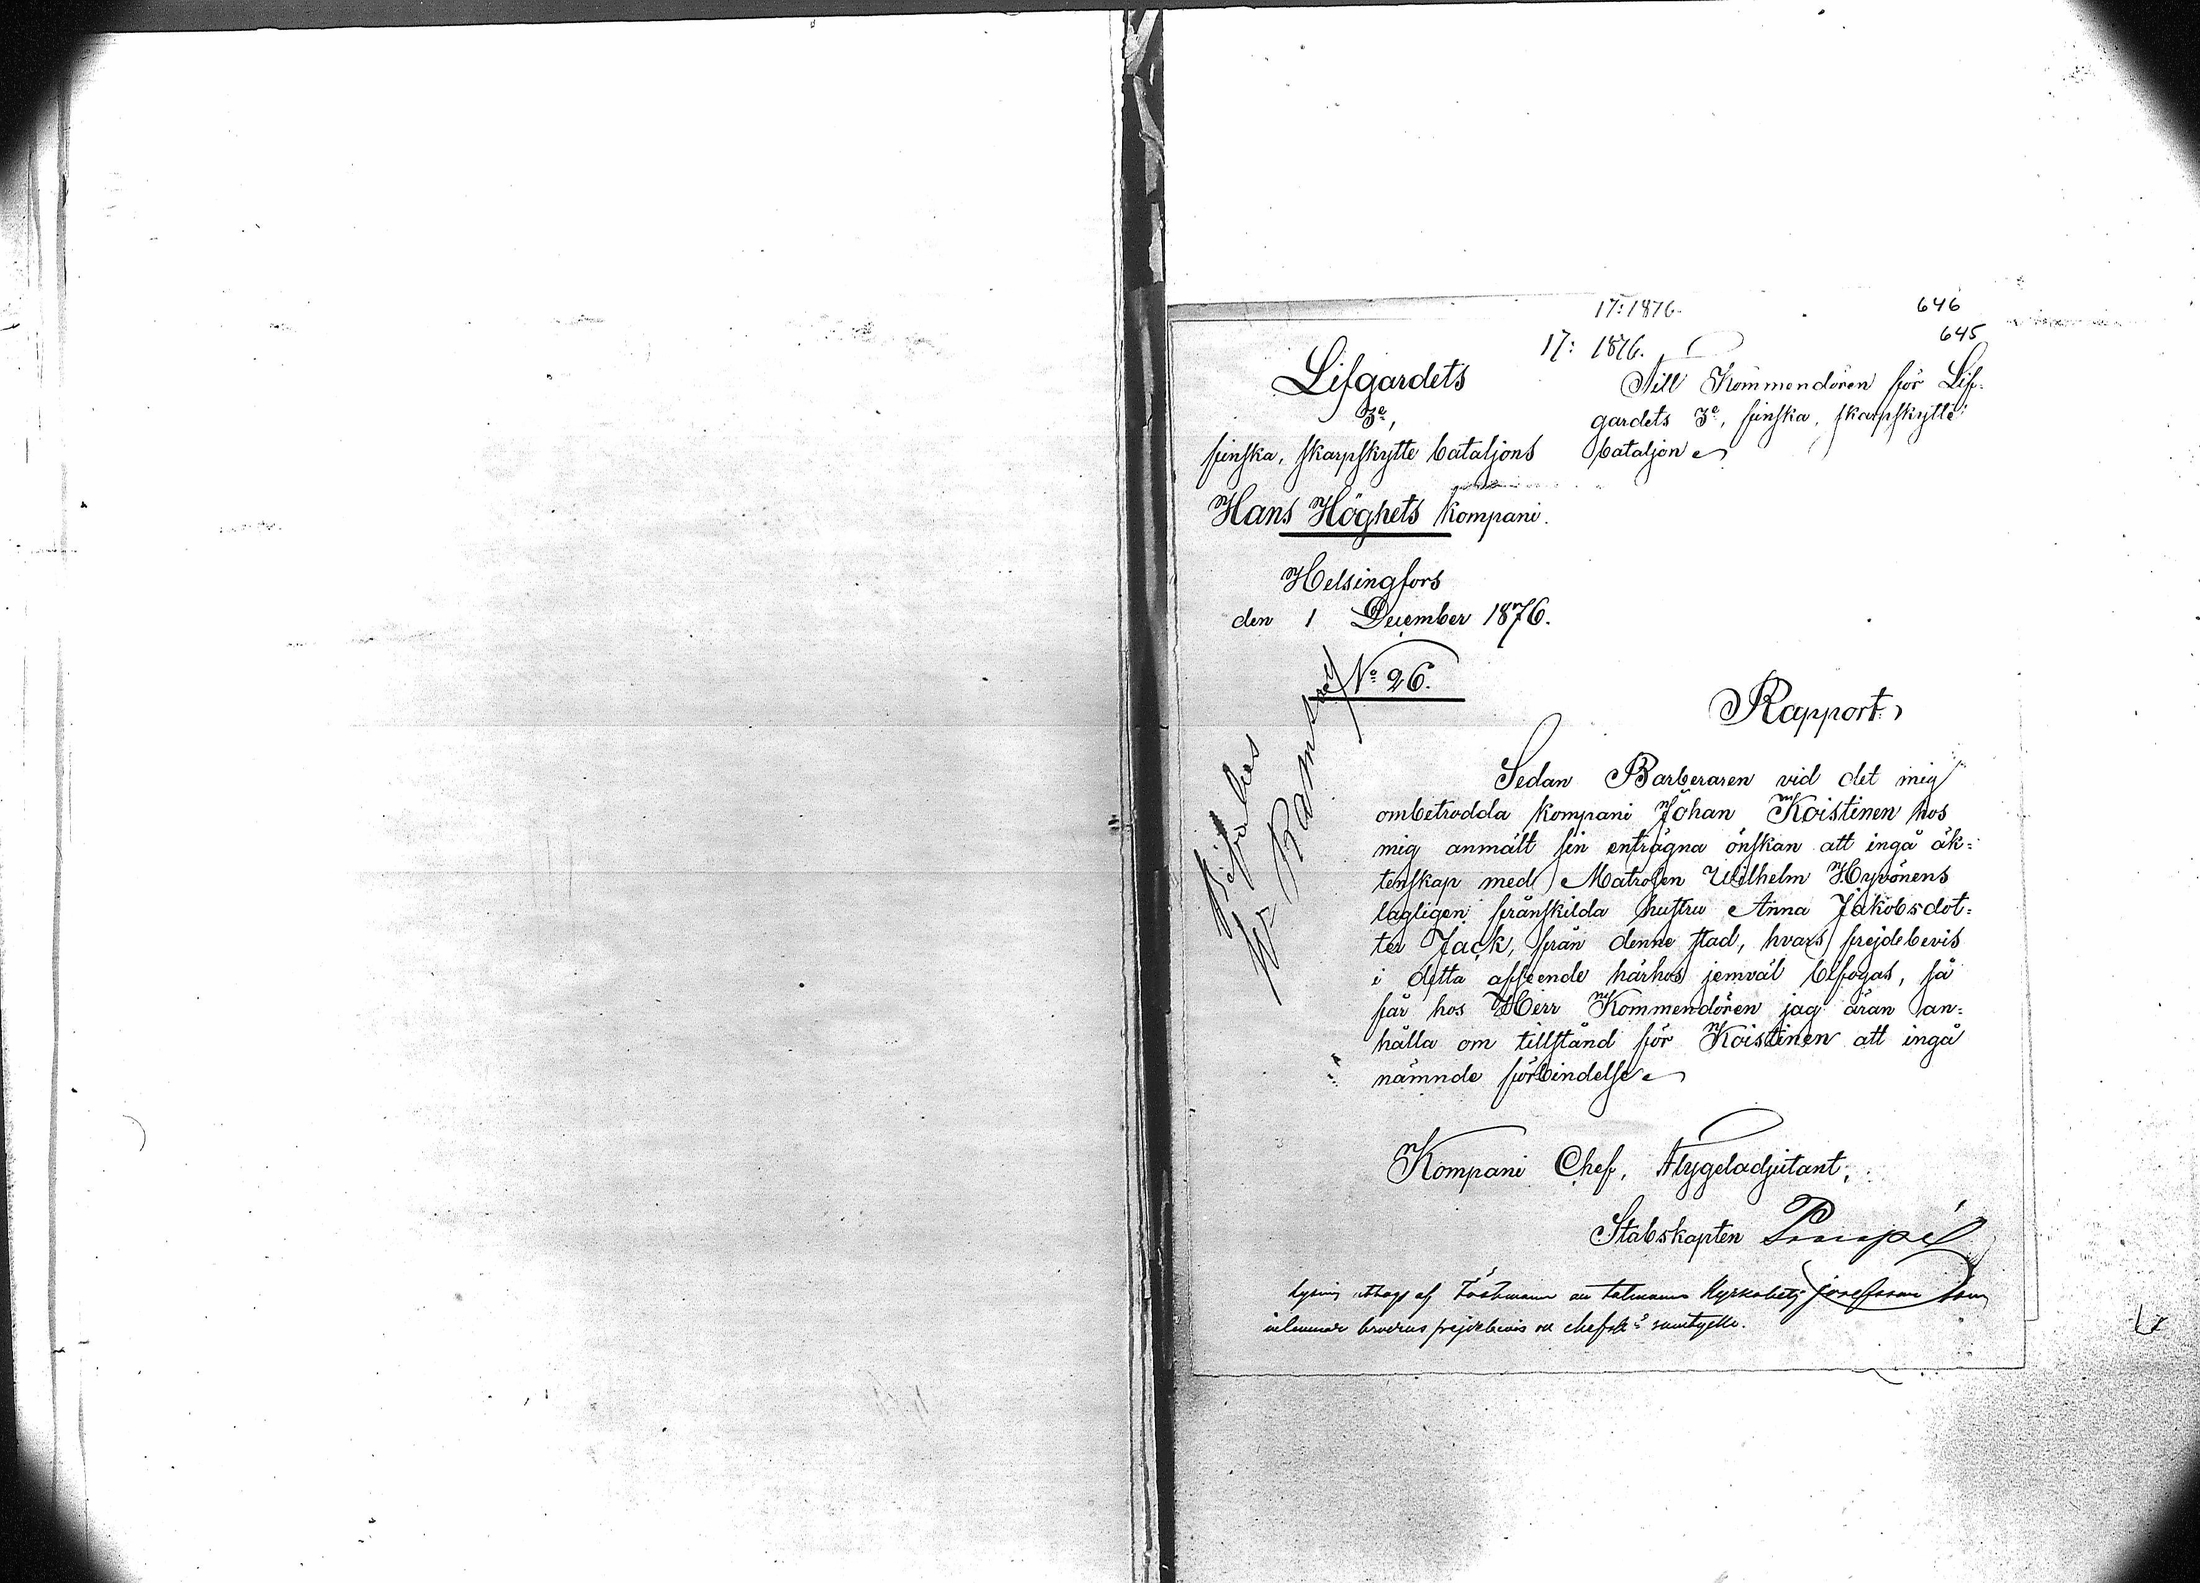 17:1876.
646
645
17: 1876.
Lifgardets
3e,
finska, skarpskytte bataljons
Hans Höghets kompani.
Till Kommendören för Lif-
gardets 3e, finska, skarpskytte-
bataljon
Helsingfors
den 1 December 1876.
No 26.
Bifalles
Rapport
Sedan Barberaren vid det mig
ombetrodda kompani Johan Koistinen hos
mig anmält sin enträgna önskan att ingå äk-
tenskap med Matrosen Wilhelm Hyvönens
lagligen frånskilda hustru Anna Jakobsdot-
ter Jack, från denne stad, hvars frejdebevis
i detta afseende härhos jemväl bifogas, så
får hos Herr Kommendören jag äran an-
hålla om tillstånd för Koistinen att ingå
nämnde förbindelse
Kompani Chef, Flygeladjutant,
Stabskapten
lysning uttags af
frejdebevis samtycke.